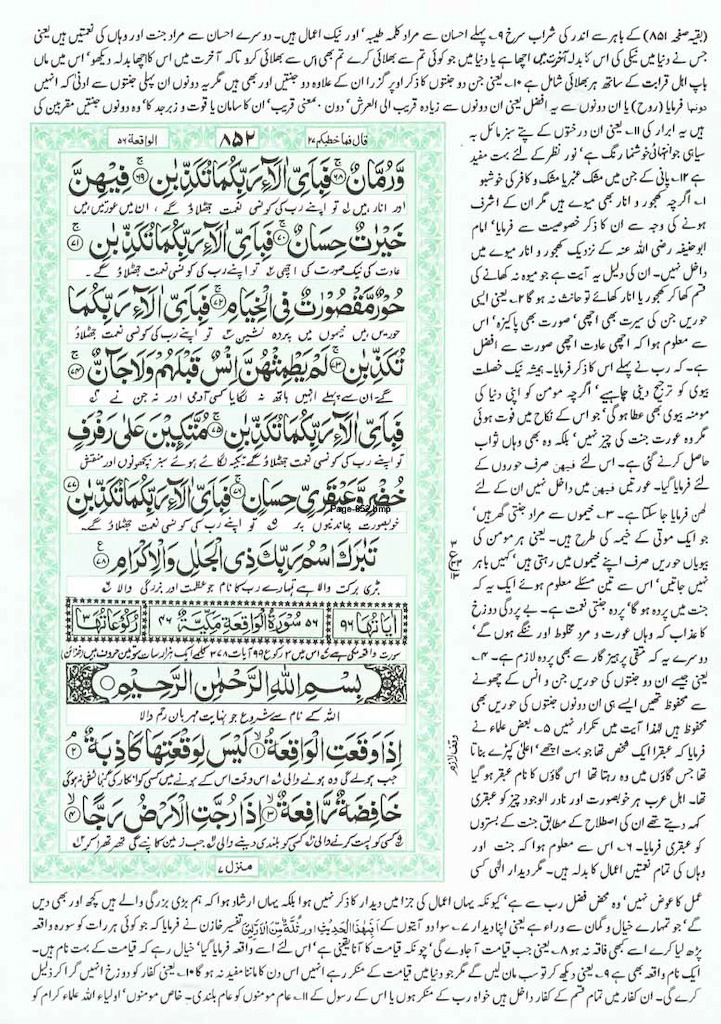 (بقیہ صفحہ ۸۵۱) کے باہر سے اندر کی شراب سرخ ۹۔ پہلے احسان سے مراد کلمہ طیبہ، اور نیک اعمال ہیں۔ دوسرے احسان سے مراد جنت اور وہاں کی نعمتیں ہیں یعنی
جس نے دنیا میں نیکی کی اس کا بدلہ آخرت میں اچھا ہے یا دنیا میں جو کوئی تم سے بھلائی کرے تم بھی اس سے بھلائی کرو تاکہ آخرت میں اس کا اچھا بدلہ دیکھو، اس میں ماں
باپ اہل قرابت کے ساتھ ہر بھلائی شامل ہے ۱۰۔ یعنی جن دو جنتوں کا ذکر اوپر گزرا ان کے علاوہ دو جنتیں اور بھی ہیں مگر یہ دونوں ان پہلی جنتوں سے ادنیٰ کہ انہیں
دونہما فرمایا (روح) یا ان دونوں سے یہ افضل یعنی ان دونوں سے زیادہ قریب الی العرش، دون۔ بمعنی قریب، ان کا سامان یا قوت و زبرجد کا، وہ دونوں جنتیں مقربین کی
ہیں یہ ابرار کی ۱۱۔ یعنی ان درختوں کے پتے سبز مائل بہ
سیاہی جو انتہائی خوشنما رنگ ہے، نور نظر کے لئے بہت مفید
ہے ۱۲۔ پانی کے جن میں مشک عنبر یا مشک و کافر کی خوشبو
۱۔ اگرچہ کھجور و انار بھی میوے ہیں مگر ان کے اشرف
ہونے کی وجہ سے ان کا ذکر خصوصیت سے فرمایا، امام
ابوحنیفہ رضی اللہ عنہ کے نزدیک کھجور و انار میوے میں
داخل نہیں۔ ان کی دلیل یہ آیت ہے جو میوہ نہ کھانے کی
قسم کھا کر کھجور یا انار کھائے تو حانث نہ ہو گا ۲۔ یعنی ایسی
حوریں جن کی سیرت بھی اچھی، صورت بھی پاکیزہ، اس
سے معلوم ہوا کہ اچھی عادت اچھی صورت سے افضل
ہے۔ کہ رب نے پہلے اس کا ذکر فرمایا۔ ہمیشہ نیک خصلت
بیوی کو ترجیح دینی چاہیے، اگرچہ مومن کو اپنی دنیا کی
مومنہ بیوی بھی عطا ہو گی، جو اس کے نکاح میں فوت ہوئی
مگر وہ عورت جنت کی چیز نہیں، بلکہ وہ بھی وہاں ثواب
حاصل کرنے گئی ہے۔ اس لئے فیھن صرف حوروں کے
لئے فرمایا گیا۔ عورتیں فیھن میں داخل نہیں ان کے لئے
لھن فرمایا جا سکتا ہے۔ ۳۔ خیموں سے مراد جنتی گھر ہیں،
جو ایک موتی کے خیمہ کی طرح ہیں۔ یعنی ہر مومن کی
بیویاں حوریں صرف اپنے خیموں میں رہتی ہیں، کہیں باہر
نہیں جاتیں، اس سے تین مسئلے معلوم ہوئے ایک یہ کہ
جنت میں پردہ ہو گا، پردہ جنتی نعمت ہے۔ بے پردگی دوزخ
کا عذاب کہ وہاں عورت و مرد مخلوط اور ننگے ہوں گے،
دوسرے یہ کہ متقی پرہیز گار سے بھی پردہ لازم ہے۔ ۴۔
یعنی جیسے ان دو جنتوں کی حوریں جن و انس کے چھونے
سے محفوظ تھیں ایسے ہی ان دونوں جنتوں کی حوریں بھی
محفوظ ہیں لہٰذا آیت میں تکرار نہیں ۵۔ بعض علماء نے
فرمایا کہ عبقرا یک شخص تھا جو بہت اچھے، اعلیٰ کپڑے بناتا
تھا جس گاؤں میں وہ رہتا تھا اس گاؤں کا نام عبقر ہو گیا
تھا۔ اہل عرب ہر خوبصورت اور نادر الوجود چیز کو عبقری
کہہ دیتے تھے ان کی اصطلاح کے مطابق جنت کے بستروں
کو عبقری فرمایا۔ ۶۔ اس سے معلوم ہوا کہ جنت اور
وہاں کی تمام نعمتیں اعمال کا بدلہ ہیں۔ مگر دیدار الٰہی کسی
قال فما خطبکم ۲۷
۸۵۲
الواقعۃ ۵۶
وَّرُمَّانٌ ۚ﴿۶۸﴾ فَبِاَیِّ اٰلَآءِ رَبِّكُمَا تُكَذِّبٰنِ ۚ﴿۶۹﴾ فِیْهِنَّ
اور انار ہیں ل تو اپنے رب کی کونسی نعمت جھٹلاؤ گے، ان میں عورتیں ہیں
خَیْرٰتٌ حِسَانٌ ۚ﴿۷۰﴾ فَبِاَیِّ اٰلَآءِ رَبِّكُمَا تُكَذِّبٰنِ ۚ﴿۷۱﴾
عادت کی نیک صورت کی اچھی ۲ تو اپنے رب کی کونسی نعمت جھٹلاؤ گے۔
حُوْرٌ مَّقْصُوْرٰتٌ فِی الْخِیَامِ ۚ﴿۷۲﴾ فَبِاَیِّ اٰلَآءِ رَبِّكُمَا
حوریں ہیں خیموں میں پردہ نشین ۳ تو اپنے رب کی کونسی نعمت جھٹلاؤ
تُكَذِّبٰنِ ۚ﴿۷۳﴾ لَمْ یَطْمِثْهُنَّ اِنْسٌ قَبْلَهُمْ وَلَا جَآنٌّ ۚ﴿۷۴﴾
گے ان سے پہلے انہیں ہاتھ نہ لگایا کسی آدمی اور نہ جن نے ۴
فَبِاَیِّ اٰلَآءِ رَبِّكُمَا تُكَذِّبٰنِ ۚ﴿۷۵﴾ مُتَّكِـِٕیْنَ عَلٰی رَفْرَفٍ
تو اپنے رب کی کونسی نعمت جھٹلاؤ گے تکیہ لگائے ہوئے سبز بچھونوں اور منقش
خُضْرٍ وَّعَبْقَرِیٍّ حِسَانٍ ۚ﴿۷۶﴾ فَبِاَیِّ اٰلَآءِ رَبِّكُمَا تُكَذِّبٰنِ ﴿۷۷﴾
Page-852.bmp
خوبصورت چاندنیوں پر ۵ تو اپنے رب کی کونسی نعمت جھٹلاؤ گے۔
تَبٰرَكَ اسْمُ رَبِّكَ ذِی الْجَلٰلِ وَالْاِكْرَامِ ﴿۷۸﴾
بڑی برکت والا ہے تمہارے رب کا نام جو عظمت اور بزرگی والا ۶
اٰیَاتُهَا ۹۶
۵۶ سُوْرَةُ الْوَاقِعَةِ مَكِّیَّةٌ ۴۶
رُكُوْعَاتُهَا ۳
سورت واقعہ مکی ہے اس میں ۳ رکوع ۹۹ آیات ۳۷۸ کلمے ایک ہزار سات سو تین حروف ہیں (خزائن)
بِسْمِ اللهِ الرَّحْمٰنِ الرَّحِیْمِ
اللہ کے نام سے شروع جو نہایت مہربان رحم والا
اِذَا وَقَعَتِ الْوَاقِعَةُ ۙ﴿۱﴾ لَیْسَ لِوَقْعَتِهَا كَاذِبَةٌ ۘ﴿۲﴾
جب ہولے گی وہ ہونے والی ۷ اس وقت اس کے ہونے میں کسی کو انکار کی گنجائش نہ ہو گی
خَافِضَةٌ رَّافِعَةٌ ۙ﴿۳﴾ اِذَا رُجَّتِ الْاَرْضُ رَجًّا ۙ﴿۴﴾
کسی کو پست کرنے والی کسی کو بلندی دینے والی جب زمین کانپے گی تھر تھرا کر
منزل ۷
وقف لازم
عمل کا عوض نہیں، وہ محض فضل رب سے ہے، کیونکہ یہاں اعمال کی جزا میں دیدار کا ذکر نہیں ہوا بلکہ یہاں ارشاد ہوا کہ ہم بڑی بزرگی والے ہیں کچھ اور بھی دیں
گے، جو تمہارے خیال و گمان سے وراء ہے یعنی اپنا دیدار ۷۔ سوا دو آیتوں کے اَفَبِهٰذَا الْحَدِیْثِ اور ثُلَّةٌ مِّنَ الْاَوَّلِیْنَ تفسیر خازن نے فرمایا کہ جو کوئی ہر رات کو سورہ واقعہ
پڑھ لیا کرے اسے کبھی فاقہ نہ ہو ۸۔ یعنی جب قیامت آ جاوے گی، چونکہ قیامت کا آنا یقینی ہے، اس لئے اسے واقعہ فرمایا گیا، خیال رہے کہ قیامت کے بہت نام ہیں۔
ایک نام واقعہ بھی ہے ۹۔ یعنی دیکھ کر تو سب مان لیں گے مگر جو دنیا میں قیامت کے منکر رہے انہیں اس دن کا ماننا مفید نہ ہو گا ۱۰۔ یعنی کفار کو دوزخ میں گرا کر ذلیل
کرے گی۔ ان کفار میں تمام قسم کے کفار داخل ہیں خواہ رب کے منکر ہوں یا اس کے رسول کے ۱۱۔ عام مومنوں کو عام بلندی۔ خاص مومنوں، اولیاء اللہ علماء کرام کو